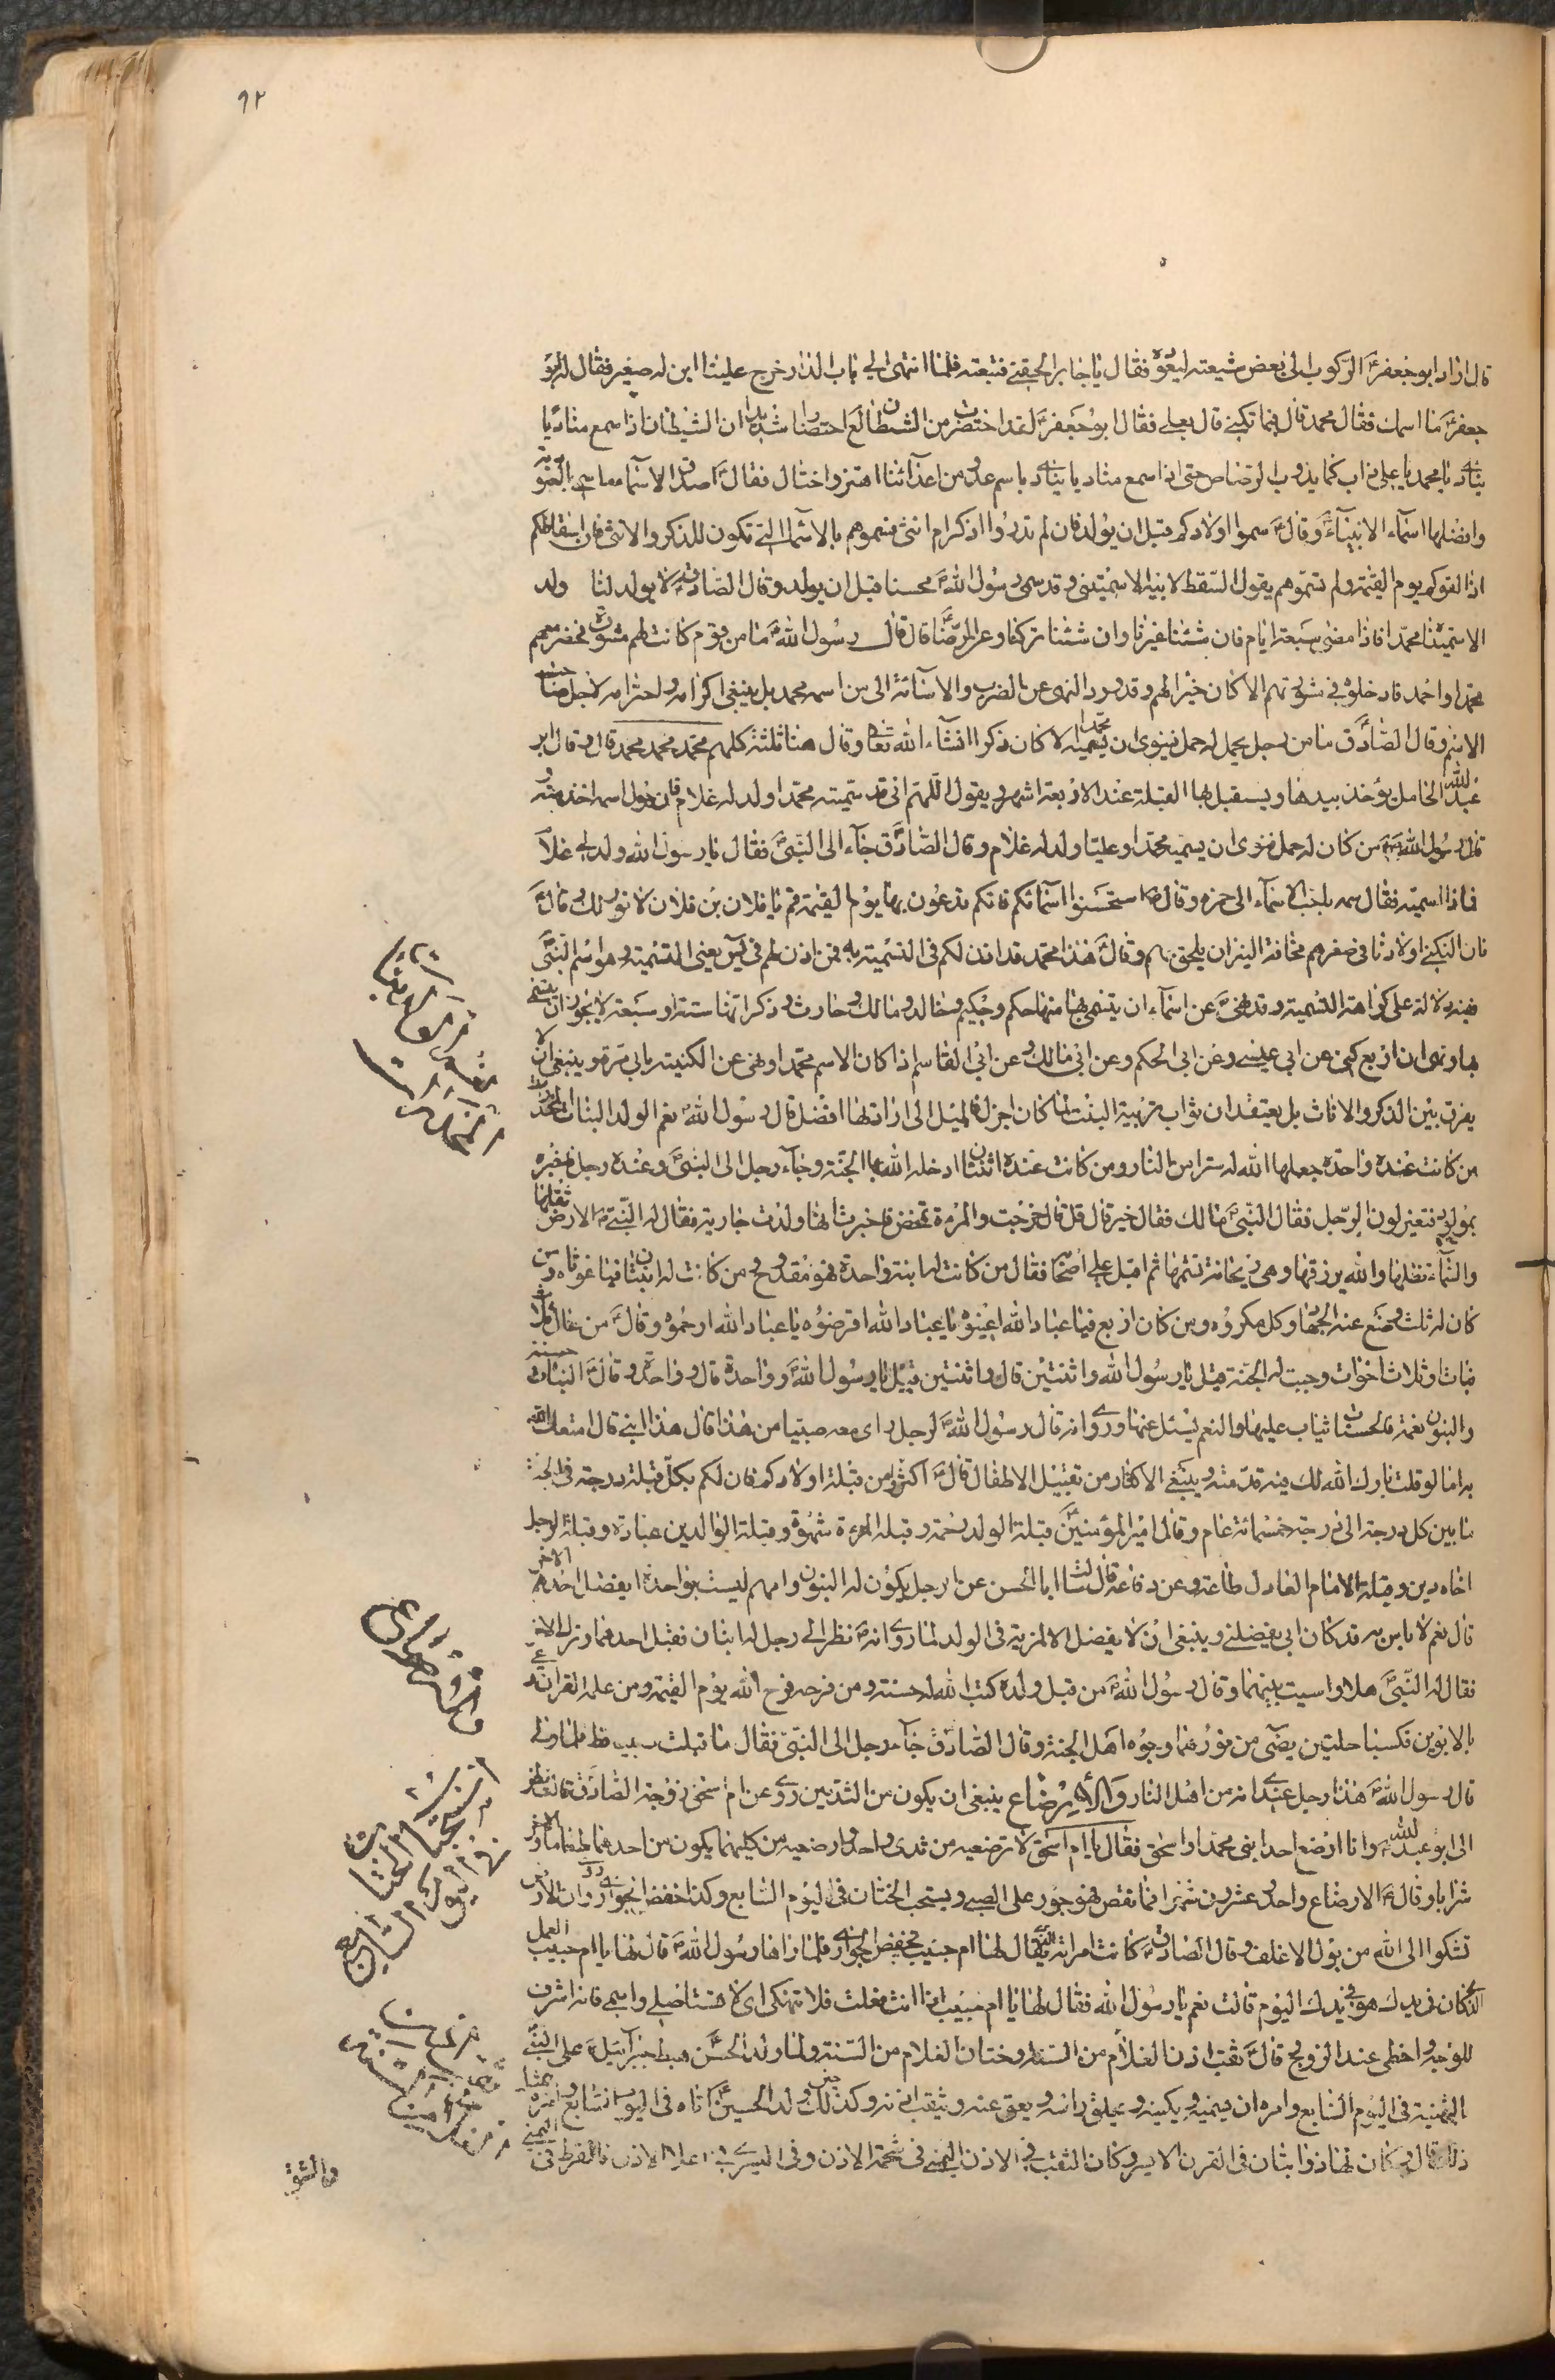 ٩٢
قال اراد ابو جعفر ع الركوب الى بعض شيعته ليعوده فقال يا جابر الحقني فتبعته فلما انتهى الى باب الدار خرج علينا ابن له صغير فقال له ابو
جعفر ع ما اسمك فقال محمد قال فبما تكنى قال بعلي فقال ابو جعفر ع لقد احتضرت من الشيطان احتضارا شديدا ان الشيطان اذا سمع مناديا
ينادي يا محمد يا علي ذاب كما يذوب الرصاص حتى اذا سمع مناديا ينادي باسم عدو من اعدائنا اهتز واختال فقال ع اصدق الاسماء ما سمي بالعبودية
وافضلها اسماء الانبياء ع وقال ع سموا اولادكم قبل ان يولد فان لم تدروا اذكر ام انثى فسموهم بالاسماء التي تكون للذكر والانثى فان اسقاطكم
اذا لقوكم يوم القيمة ولم تسموهم يقول السقط لابيه الا سميتني وقد سمى رسول الله ص محسنا قبل ان يولد وقال الصادق ع لا يولد لنا ولد
الا سميناه محمدا فاذا مضى سبعة ايام فان شئنا غيرنا وان شئنا تركنا وعن الرضا ع قال قال رسول الله ص ما من قوم كانت لهم مشورة فحضر معهم
محمد او احمد فادخلوه في مشورتهم الا كان خيرا لهم وقد ورد النهى عن الضرب والاسائة الى من اسمه محمد بل ينبغي اكرامه واحترامه لاجل
الاسم وقال الصادق ع ما من رجل يحمل له حمل فينوي ان يسميه محمدا الا كان ذكرا انشاء الله تعالى وقال هنا ثلثة كلهم محمد محمد محمد قال وقال ابو
عبد الله الحامل يؤخذ بيدها ويستقبل بها القبلة عند الاربعة اشهر ويقول اللهم اني قد سميته محمدا ولد له غلام فان حول اسمه اخذ منه
قال رسول الله ص من كان له حمل فنوى ان يسميه محمدا او عليا ولد له غلام وقال الصادق ع جاء الى النبي ص فقال يا رسول الله ولد لي غلام
فماذا اسميه فقال سمه باحب الاسماء الي حمزه وقال ص استحسنوا اسمائكم فانكم تدعون بها يوم القيمة قم يا فلان بن فلان لا نور لك وقال ع
انا لنكني اولادنا في صغرهم مخافة النبز ان يلحق بهم وقال ع هذا محمد قد اذن لكم في التسمية به فمن اذن لهم في يس يعني التسمية وهو اسم النبي ص
فيه دلالة على كراهة التسمية وقد نهى ع عن اسماء ان يتسمى بها منها حكم وحكيم وخالد ومالك وحارث وذكر انها ستة او سبعة لا يجوز ان يتسمى
بها ونهى ان اربع كنى عن ابي عيسى وعن ابي الحكم وعن ابي مالك وعن ابي القاسم اذا كان الاسم محمدا ونهى عن الكنية بابي مرة وينبغي ان لا
يفرق بين الذكر والاناث بل يعتقد ان ثواب تربية البنت لما كان اجزل فالميل الى ارادتها افضل قال رسول الله ص نعم الولد البنات المخدرات
من كانت عنده واحدة جعلها الله له سترا من النار ومن كانت عنده اثنتان ادخله الله بها الجنة وجاء رجل الى النبي ص وعنده رجل فاخبره
بمولود فتغير لون الرجل فقال النبي ص ما لك فقال خير قال قل قال خرجت والمرءة تمخض فاخبرت انها ولدت جارية فقال له النبي ص الارض تقلها
والسماء تظلها والله يرزقها وهي ريحانة تشمها ثم اقبل على اصحابه فقال من كانت له ابنة واحدة فهو مقدوح ومن كانت له ابنتان فيا غوثاه ومن
كان له ثلث وضع عنه الجهاد وكل مكروه ومن كان اربع فيا عباد الله اعينوه يا عباد الله اقرضوه يا عباد الله ارحموه وقال ع من عال ثلاث
بنات او ثلاث اخوات وجبت له الجنة قيل يا رسول الله واثنتين قال واثنتين قيل يا رسول الله ص وواحدة قال وواحدة وقال ع البنات حسنة
والبنون نعمة فالحسنات يثاب عليها والنعم يسئل عنها وروى انه قال رسول الله ص لرجل راى معه صبيا من هذا قال هذا ابني قال امتعك الله
به اما لو قلت بارك الله لك فيه قدمته وينبغي الاكثار من تقبيل الاطفال قال ع اكثروا من قبلة اولادكم فان لكم بكل قبلة درجة في الجنة
ما بين كل درجة الى درجة خمسمائة عام وقال امير المؤمنين ع قبلة الولد رحمة وقبلة المرءة شهوة وقبلة الوالدين عبادة وقبلة الرجل
اخاه دين وقبلة الامام العادل طاعة وعن رفاعة قال سئلت ابا الحسن عن الرجل يكون له البنون وامهم ليست بواحدة ايفضل احدهم الاخر
قال نعم لا باس به قد كان ابي يفضلني وينبغي ان لا يفضل الا لمزية في الولد لما روى انه ع نظر الى رجل له ابنان فقبل احدهما وترك الاخر
فقال له النبي ص هلا واسيت بينهما وقال رسول الله ص من قبل ولده كتب الله له حسنة ومن فرحه فرح الله يوم القيمة ومن علمه القران دعي
بالابوين فكسيا حلتين يضئ من نورهما وجوه اهل الجنة وقال الصادق ع جاء رجل الى النبي ص فقال ما قبلت صبيا قط فلما ولى
قال رسول الله ص هذا رجل عندي انه من اهل النار والارضاع ينبغي ان يكون من الثديين روى عن ام اسحق زوجة الصادق ع قالت نظر
الى ابو عبد الله ع وانا ارضع احد ابني محمد او اسحق فقال يا ام اسحق لا ترضعيه من ثدي واحد وارضعيه من كليهما يكون من احدهما طعاما والاخر
شرابا وقال ع الارضاع واحد وعشرون شهرا فما نقص فهو جور على الصبي ويستحب الختان في اليوم السابع وكذا خفض الجواري روى ان الارض
تشكوا الى الله من بول الاغلف وقال الصادق ع كانت امراة يقال لها ام حبيب تخفض الجواري فلما راها رسول الله ص قال لها يا ام حبيب العمل
الذي كان في يدك هو في يدك اليوم قالت نعم يا رسول الله فقال لها يا ام حبيب اذا انت فعلت فلا تنهكي اي لا تستاصلي واشمي فانه اشرف
للوجه واحظى عند الزوج قال ع ثقب اذن الغلام من السنة وختان الغلام من السنة ولما ولد الحسن ع هبط جبرائيل على النبي ص
بالتهنية في اليوم السابع وامره ان يسميه ويكنيه ويحلق راسه ويعق عنه ويثقب اذنه وكذلك حين ولد الحسين ع اتاه في اليوم السابع وامره بمثل
ذلك قال وكان لهما ذؤابتان في القرن الايسر وكان الثقب في الاذن اليمنى في شحمة الاذن وفي اليسرى في اعلا الاذن فالقرط في اليمنى
والشنف